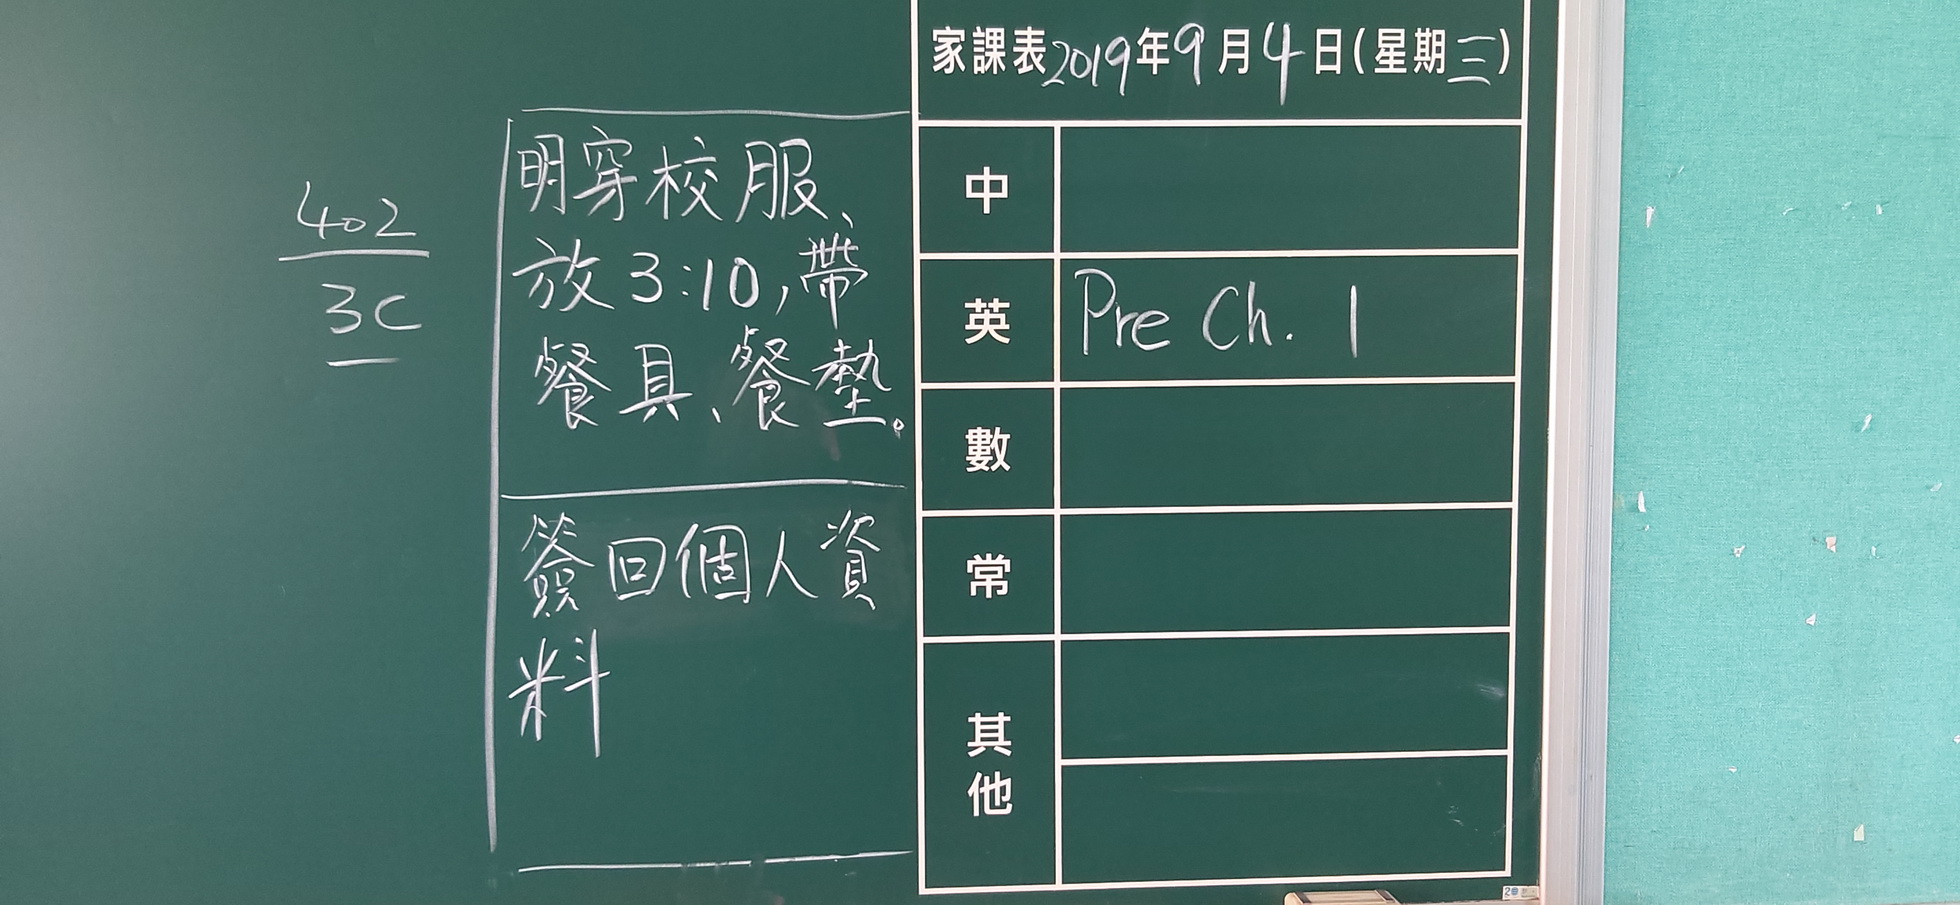 家課表2019年9月4日(星期三)
402
3C
明穿校服、
放3:10,帶
餐具、餐墊。
簽回個人資
料
中
英 Pre Ch. 1
數
常
其他